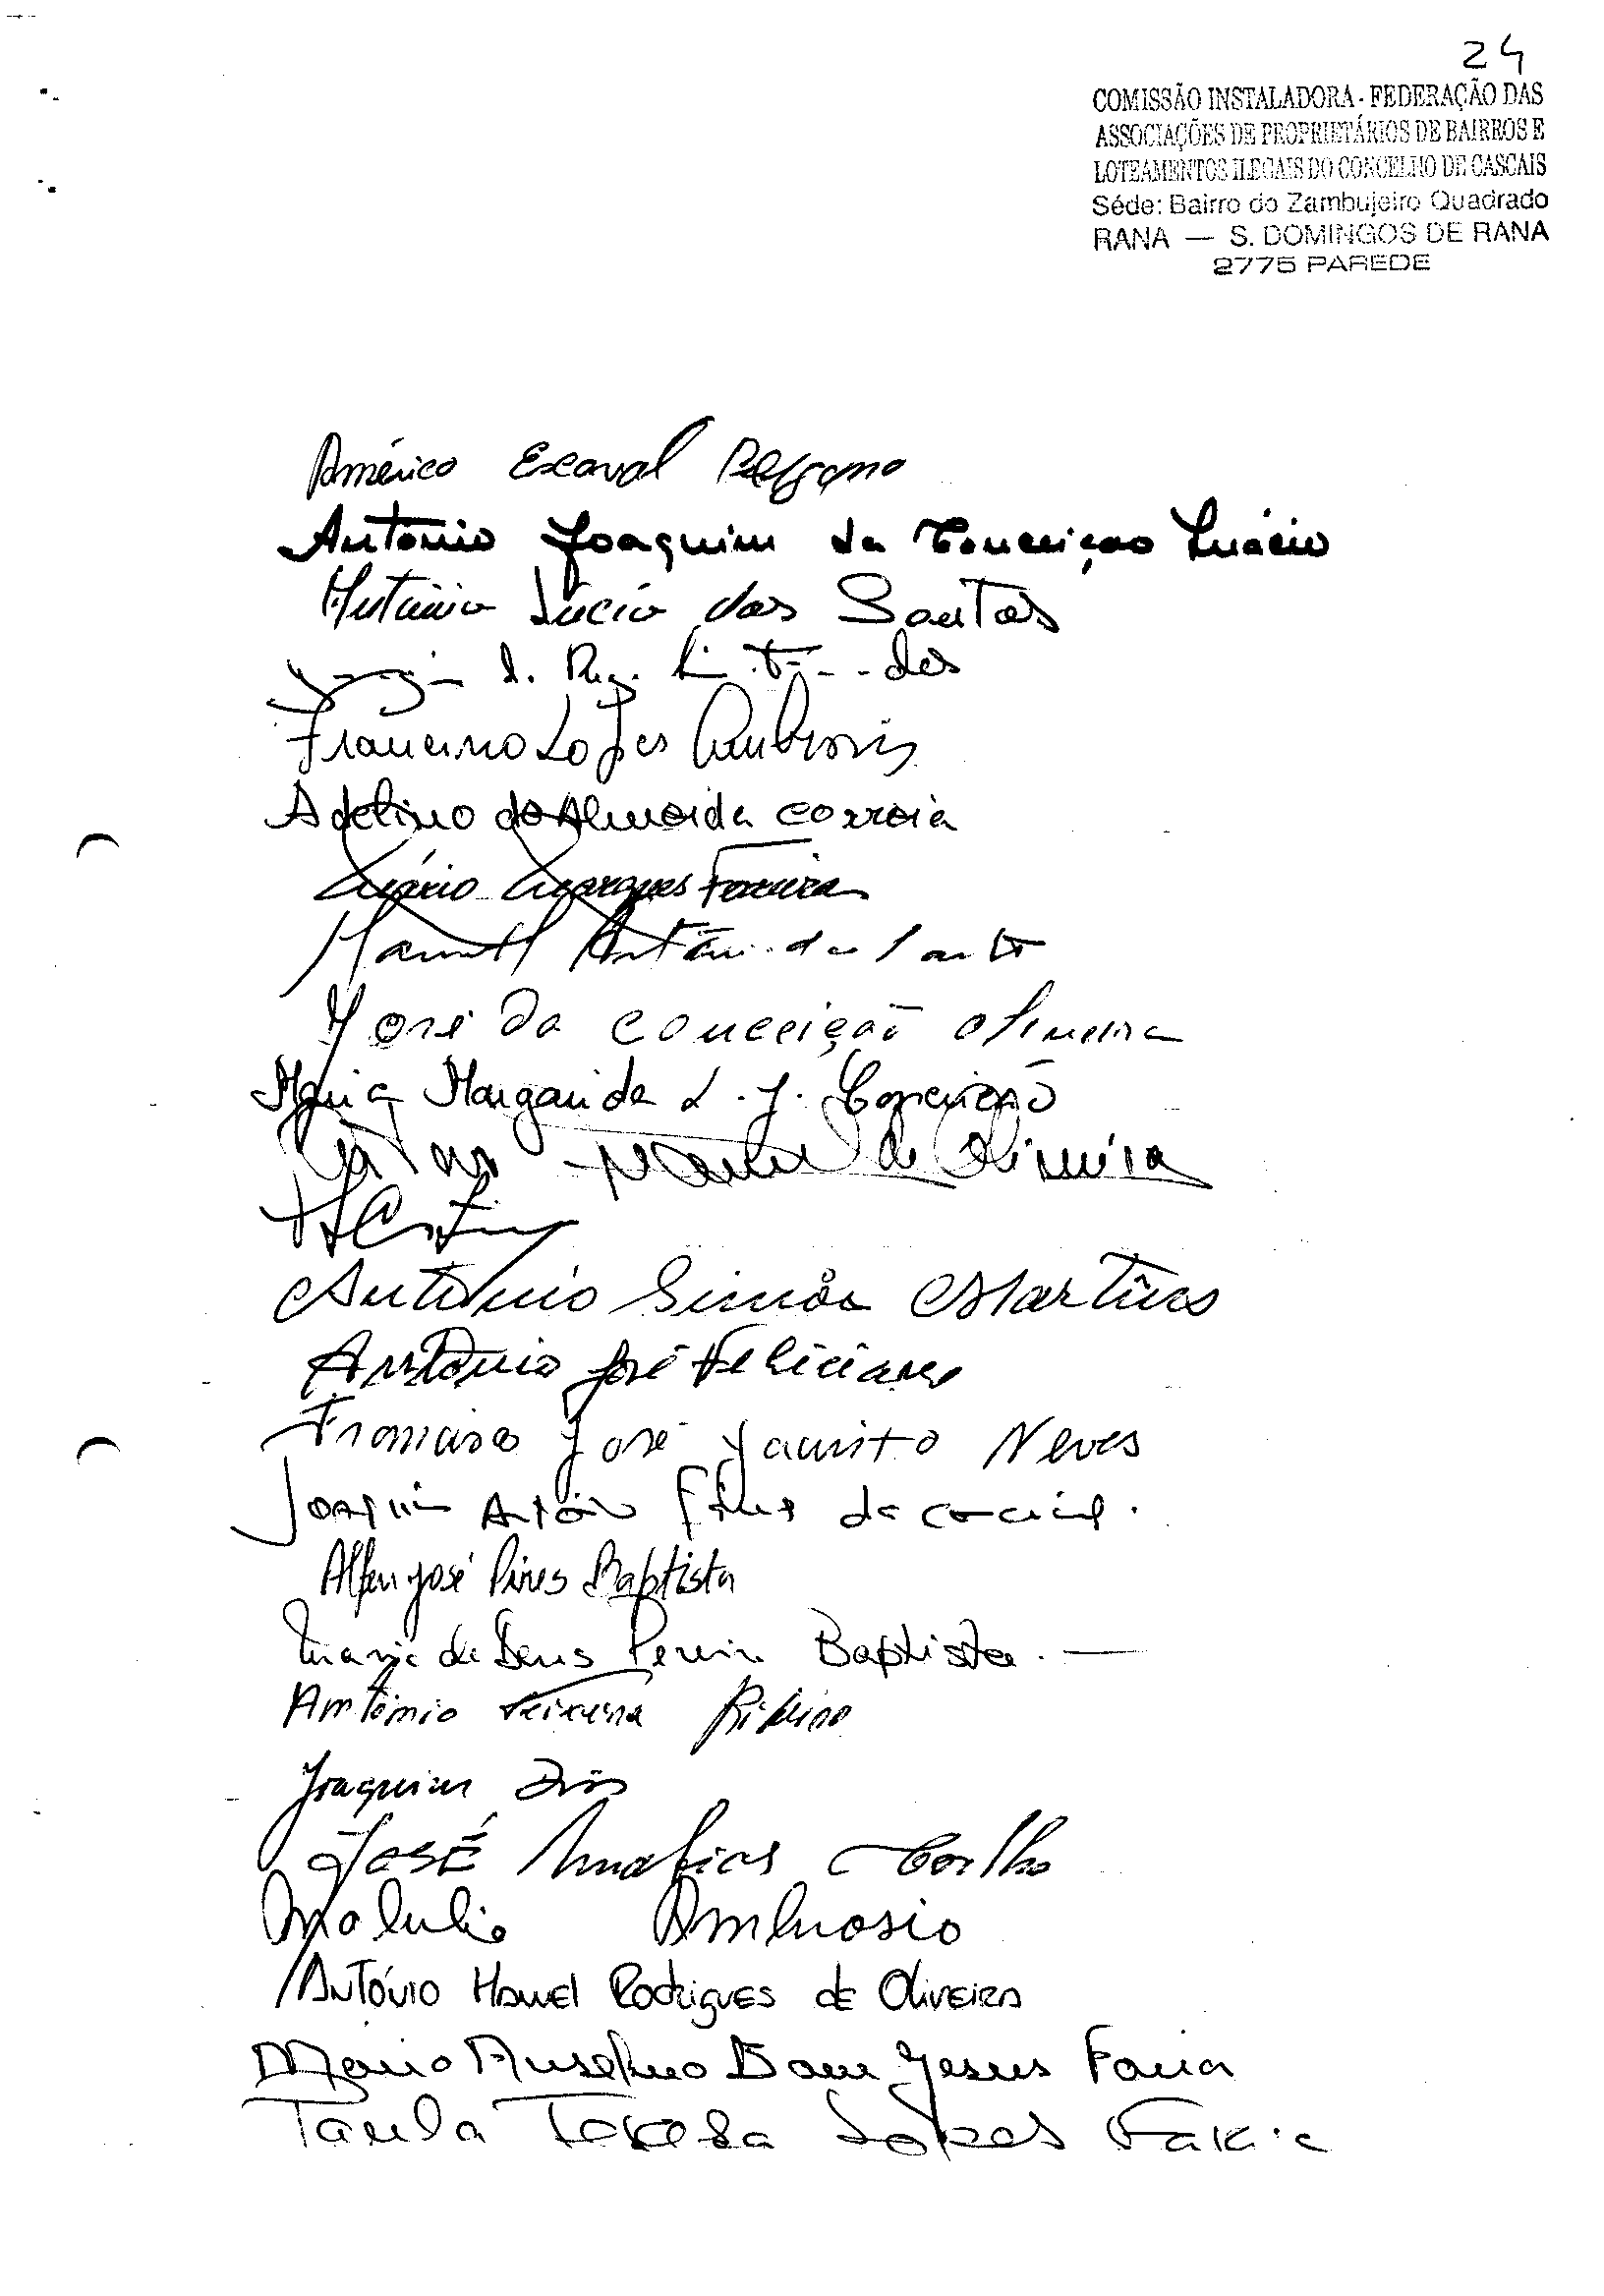 24
COMISSÃO INSTALADORA - FEDERAÇÃO DAS
ASSOCIAÇÕES DE PROPRIETÁRIOS DE BAIRROS E
LOTEAMENTOS ILEGAIS DO CONCELHO DE CASCAIS
Séde: Bairro do Zambujeiro Quadrado
RANA — S. DOMINGOS DE RANA
2775 PAREDE
Américo
António Joaquim da Conceiçao Inácio
António Lúcio dos Santos
dos
Francisco Lopes Ambrosio
Adelino de Almeida Correia
Mário Marques Ferreira
Manuel António do Santo
José da Conceição Oliveira
Maria Margarida L. J. Conceição
Carlos Manuel de Oliveira
António Simão Martins
António José Feliciano
Francisco José Jacinto Neves
Joaquim António da
José Pires Baptista
Maria de Deus Pereira Baptista. —
António Teixeira Ribeiro
Joaquim Dias
José Coelho
Ambrosio
António Manuel Rodrigues de Oliveira
Mário Anselmo Dom Jesus Faria
Paula Teresa Lopes Faria